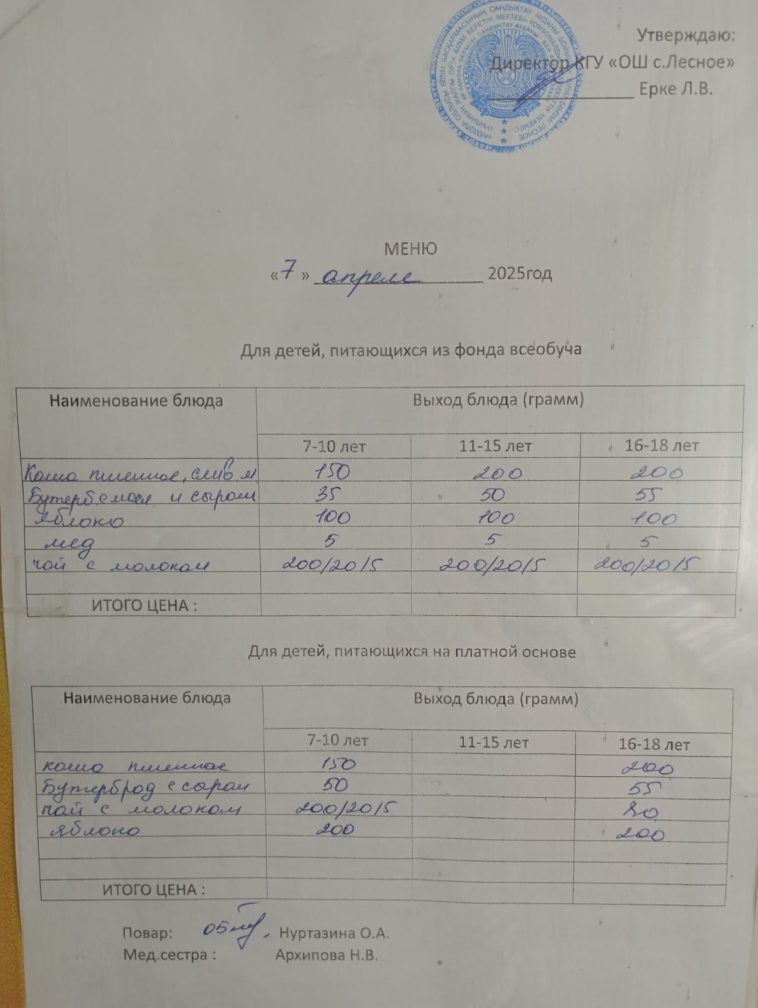 Утверждаю:
Директор КГУ «ОШ с.Лесное»
Ерке Л.В.
МЕНЮ
«7» апреля 2025год
Для детей, питающихся из фонда всеобуча
Наименование блюда Выход блюда (грамм)
7-10 лет 11-15 лет 16-18 лет
Каша пшенная, слив м 150 200 200
Бутерб с масл и сыром 35 50 55
Яблоко 100 100 100
мед 5 5 5
чай с молоком 200/20/5 200/20/5 200/20/5
ИТОГО ЦЕНА :
Для детей, питающихся на платной основе
Наименование блюда Выход блюда (грамм)
7-10 лет 11-15 лет 16-18 лет
каша пшенная 150 200
Бутерброд с сыром 50 55
чай с молоком 200/20/5
яблоко 200 200
ИТОГО ЦЕНА :
Повар: Нуртазина О.А.
Мед.сестра : Архипова Н.В.